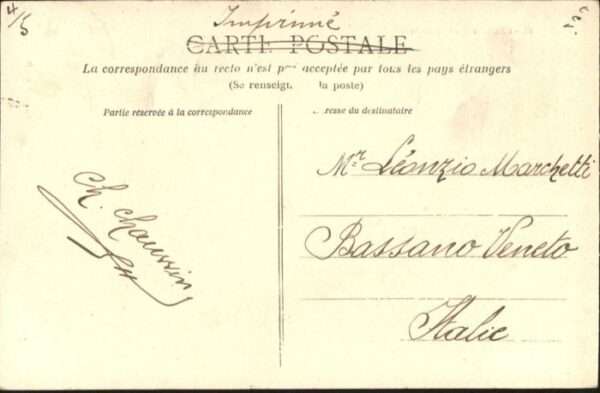 4/5
Imprimé
CARTE POSTALE
La correspondance au recto n'est p acceptée par tous les pays étrangers
(Se renseign la poste)
Partie réservée à la correspondance
resse du destinataire
Mr. Léonzio Marchetti
Ch. Chaussin
Bassano Veneto
Italie